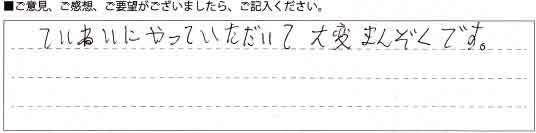 ■ご意見、ご感想、ご要望がございましたら、ご記入ください。
ていねいにやっていただいて 大変まんぞくです。